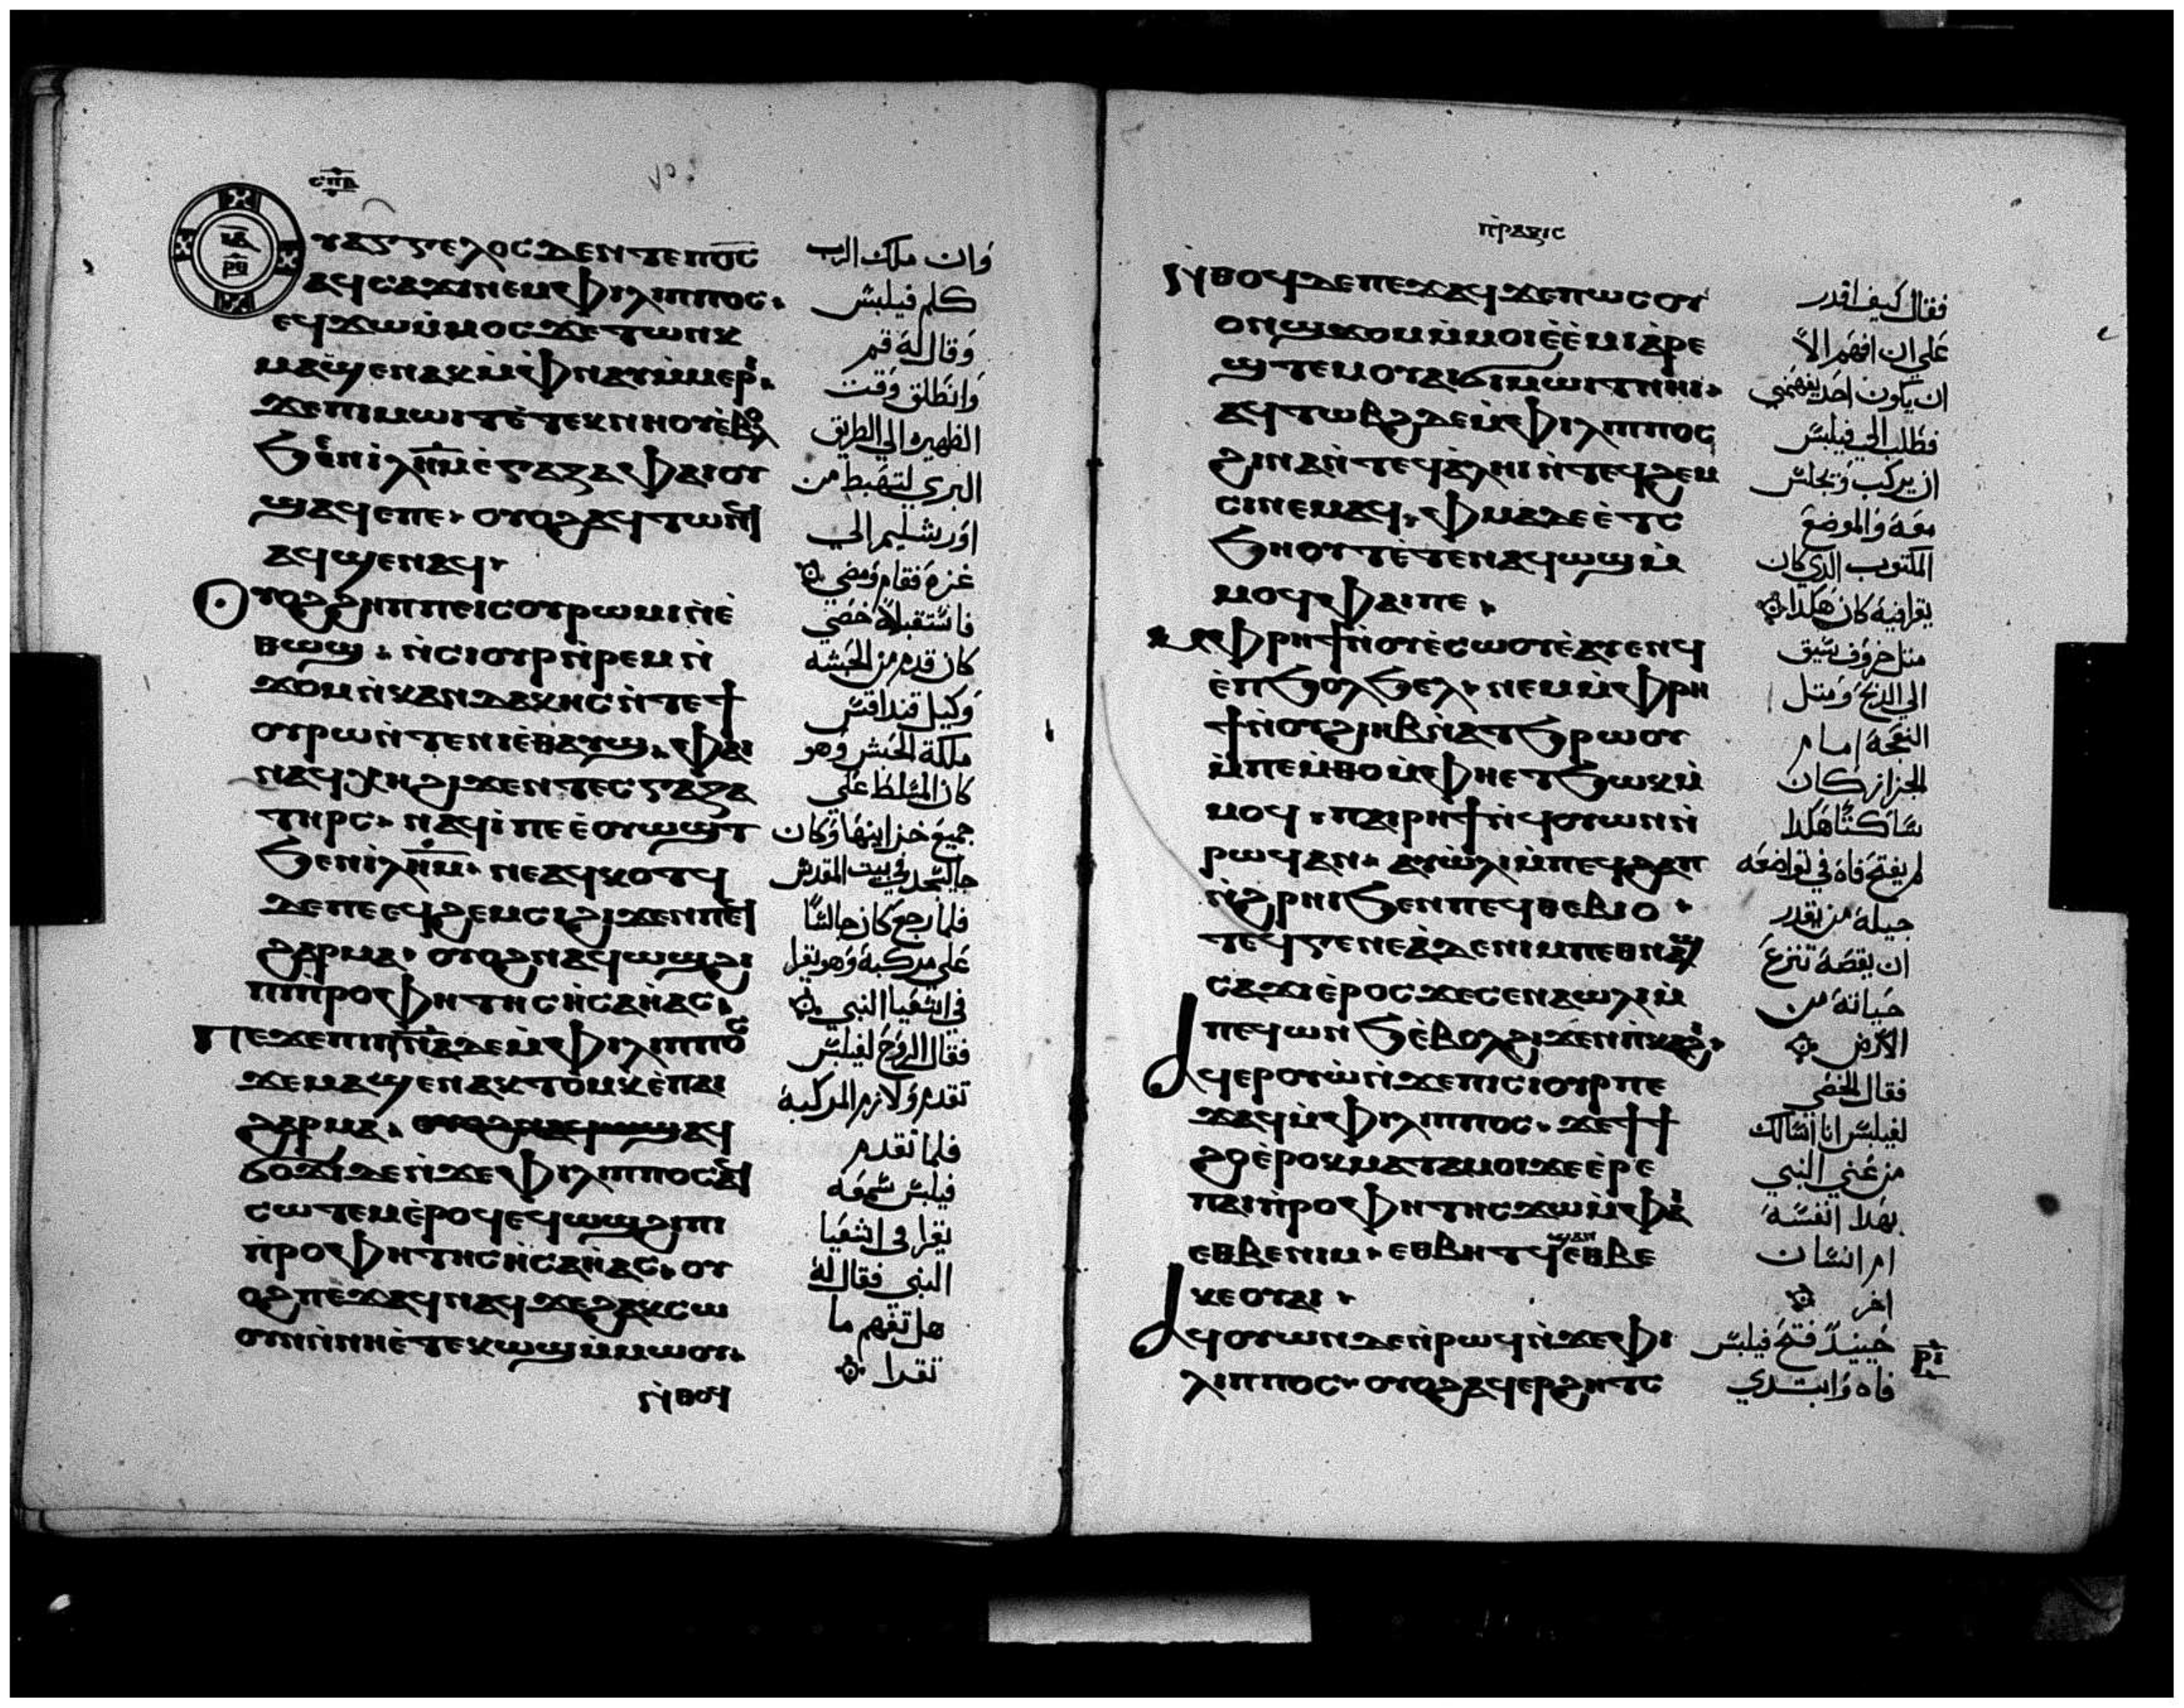 ⲥⲡⲃ
ⲟⲩⲁⲅⲅⲉⲗⲟⲥ ⲇⲉ ⲛⲧⲉ ⲡⲟ̅ⲥ̅
ⲁϥⲥⲁϫⲓ ⲛⲉⲙ ⲫⲓⲗⲓⲡⲡⲟⲥ
ⲉϥϫⲱ ⲙ̀ⲙⲟⲥ ϫⲉ ⲧⲱⲛⲕ
ⲙⲁϣⲉⲛⲁⲕ ⲙ̀ⲫⲛⲁⲩ ⲙ̀ⲙⲉⲣⲓ
ϧⲉⲛ ⲓⲗⲏⲙ ⲉ̀ⲅⲁⲍⲁ ⲫⲁⲓ ⲟⲩ
ϣⲁϥⲉ ⲡⲉ ⲟⲩⲟϩ ⲁϥⲧⲱⲛϥ
ⲁϥϣⲉⲛⲁϥ
ⲟⲩⲟϩ ϩⲏⲡⲡⲉ ⲓⲥ ⲟⲩⲣⲱⲙⲓ ⲛ̀ⲉ̀
ⲑⲱϣ ⲛ̀ⲥⲓⲟⲩⲣ ⲛ̀ⲣⲉⲙ ⲛ̀
ϫⲟⲙ ⲛ̀ⲕⲁⲛⲇⲁⲕⲏⲥ ⲛ̀ⲧⲉ ϯ
ⲟⲩⲣⲱ ⲛ̀ⲧⲉ ⲛⲓⲉ̀ⲑⲁⲩϣ ⲫⲁⲓ
ⲛⲁϥⲭⲏ ϩⲓϫⲉⲛ ⲧⲉⲥⲅⲁⲍⲁ
ⲧⲏⲣⲥ ⲛⲁϥⲓ̀ ⲡⲉ ⲉ̀ⲟⲩⲱϣⲧ
ϧⲉⲛ ⲓⲗⲏⲙ ⲛⲉⲁϥⲕⲟⲧϥ
ⲇⲉ ⲡⲉ ⲉϥϩⲉⲙⲥⲓ ϩⲓϫⲉⲛ ⲡⲉϥ
ϩⲁⲣⲙⲁ ⲟⲩⲟϩ ⲛⲁϥⲱϣ ϩⲓ
ⲡⲓⲡ̀ⲣⲟⲫⲏⲧⲏⲥ ⲏ̀ⲥⲁⲏ̀ⲁⲥ
ⲡⲉϫⲉ ⲡⲓⲡ̅ⲛ̅ⲁ̅ ⲇⲉ ⲙ̀ⲫⲓⲗⲓⲡⲡⲟⲥ
ϫⲉ ⲙⲁϣⲉⲛⲁⲕ ⲧⲟⲙⲕ ⲉ̀ⲡⲁⲓ
ϩⲁⲣⲙⲁ
ϭⲟϫⲓ ⲇⲉ ⲛ̀ϫⲉ ⲫⲓⲗⲓⲡⲡⲟⲥ ⲁϥ
ⲥⲱⲧⲉⲙ ⲉ̀ⲣⲟϥ ⲉϥⲱϣ ϩⲓ ⲡⲓ
ⲡ̀ⲣⲟⲫⲏⲧⲏⲥ ⲏ̀ⲥⲁⲏ̀ⲁⲥ ⲟⲩ
ⲟϩ ⲡⲉϫⲁϥ ⲛⲁϥ ϫⲉ ϩⲁⲕⲥⲱ
ⲟⲩⲛ ⲛ̀ⲛⲏ ⲉ̀ⲧⲉⲕⲱϣ ⲙ̀ⲙⲱⲟⲩ
ⲛ̀ⲑⲟϥ
وان ملاك الرب
كلم فيلبس
وقال له قم
وانطلق وقت
الظهيره الي الطريق
البري لتهبط من
اورشليم الي
غزه فقام ومضي
فاستقبله خصي
كان قدم من الحبشه
وكيل قنداقس
ملكة الحبش وهو
كان المسلط علي
جميع خزاينها وكان
جا ليسجد في بيت المقدس
فلما رجع كان جالسًا
علي مركبه وهو يقرا
في اشعيا النبي
فقال الروح لفيلبس
تقدم ولازم المركبه
فلما تقدم
فيلبس سمعه
يقرا في اشعيا
النبي فقال له
هل تفهم ما
تقرا
ⲡ̀ⲣⲁⲝⲓⲥ
ⲛ̀ⲑⲟϥ ⲇⲉ ⲡⲉϫⲁϥ ϫⲉ ⲡⲱⲥ ⲟⲩ
ⲟⲛ ϣϫⲟⲙ ⲙ̀ⲙⲟⲓ ⲉ̀ⲉ̀ⲙⲓ ⲁ̀ⲣⲉ
ϣⲧⲉⲙ ⲟⲩⲁⲓ ϭⲓⲙⲱⲓⲧ ⲛⲏⲓ
ⲁϥⲧⲱⲃϩ ⲇⲉ ⲙ̀ⲫⲓⲗⲓⲡⲡⲟⲥ
ϩⲓⲛⲁ ⲛ̀ⲧⲉϥⲁ̀ⲗⲏⲓ ⲛ̀ⲧⲉϥϩⲉⲙ
ⲥⲓ ⲛⲉⲙⲁϥ ⲫⲙⲁ ⲇⲉ ⲉ̀ⲧⲥ
ϧⲏⲟⲩⲧ ⲉ̀ⲧⲉⲛⲁϥⲱϣ ⲙ̀
ⲙⲟϥ ⲫⲁⲓ ⲡⲉ
ⲙ̀ⲫⲣⲏϯ ⲛ̀ⲟⲩⲉ̀ⲥⲱⲟⲩ ⲉ̀ⲁⲩⲉⲛϥ
ⲉ̀ⲡϧⲟⲗϧⲉⲗ ⲛⲉⲙ ⲙ̀ⲫⲣⲏ
ϯ ⲛ̀ⲟⲩϩⲓⲏⲃ ⲛ̀ⲁⲧϧⲣⲱⲟⲩ
ⲙ̀ⲡⲉⲙⲑⲟ ⲙ̀ⲫⲏ ⲉⲧϧⲱⲕ ⲙ̀
ⲙⲟϥ ⲡⲁⲓⲣⲏϯ ⲛ̀ϥⲟⲩⲱⲛ ⲛ̀
ⲣⲱϥ ⲁⲛ ⲁⲩⲱⲗⲓ ⲙ̀ⲡⲉϥϩⲁⲡ
ⲛ̀ϩⲣⲏⲓ ϧⲉⲛ ⲡⲉϥⲑⲉⲃⲓⲟ
ⲧⲉϥⲅⲉⲛⲉⲁ̀ ⲇⲉ ⲛⲓⲙ ⲡⲉⲑⲛⲁϣ
ⲥⲁϫⲓ ⲉ̀ⲣⲟⲥ ϫⲉ ⲥⲉⲛⲁⲱⲗⲓ ⲙ̀
ⲡⲉϥⲱⲛϧ ⲉ̀ⲃⲟⲗ ϩⲓϫⲉⲛ ⲡⲕⲁϩⲓ
ⲁϥⲉⲣⲟⲩⲱ ⲛ̀ϫⲉ ⲡⲓⲥⲓⲟⲩⲣ ⲡⲉ
ϫⲁϥ ⲙ̀ⲫⲓⲗⲓⲡⲡⲟⲥ ϫⲉ ϯϯ
ϩⲟ ⲉ̀ⲣⲟⲕ ⲙⲁⲧⲁⲙⲟⲓ ϫⲉ ⲉ̀ⲣⲉ
ⲡⲁⲓⲡ̀ⲣⲟⲫⲏⲧⲏⲥ ϫⲱ ⲙ̀ⲫⲁⲓ
ⲉⲑⲃⲉ ⲛⲓⲙ ⲉⲑⲃⲏⲧϥ ⲉⲑⲃⲉ
ⲕⲉⲟⲩⲁⲓ
ⲁϥⲟⲩⲱⲛ ⲇⲉ ⲛ̀ⲣⲱϥ ⲛ̀ϫⲉ ⲫⲓ
ⲗⲓⲡⲡⲟⲥ ⲟⲩⲟϩ ⲁϥⲉⲣϩⲏⲧⲥ
فقال كيف اقدر
علي ان افهم الا
ان يكون احد يفهمني
فطلب الي فيلبس
ان يركب ويجلس
معه والموضع
المكتوب الذي كان
يقرا فيه كان هكذا
مثل خروف سيق
الي الذبح ومثل
النعجه امام
الجزاز كان
ساكتًا هكذا
لم يفتح فاه في تواضعه
جيله من يقدر
ان يقصه تنزع
حياته من
الارض
فقال الخصي
لفيلبس انا اسالك
من عني النبي
بهذا انفسه
ام انسان
اخر
حينيذ فتح فيلبس
فاه وابتدي